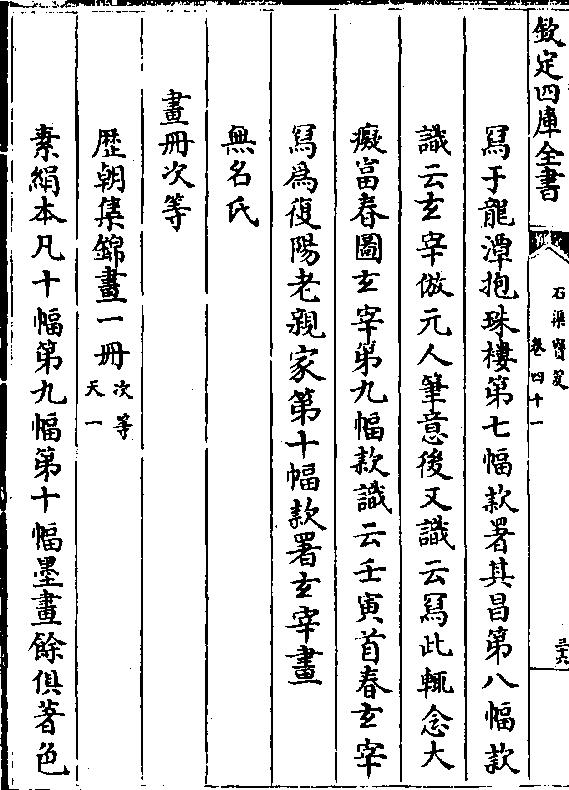 欽定四庫全書
石渠寳笈
卷四十一
三六
冩于龍潭抱珠樓第七幅款署其昌第八幅款
識云玄宰倣元人筆意後又識云冩此輒念大
癡富春圖玄宰第九幅款識云壬寅首春玄宰
冩為復陽老親家第十幅款署玄宰畫
無名氏
畫册次等
歴朝集錦畫一册次等
天一
素絹本凡十幅第九幅第十幅墨畫餘俱著色